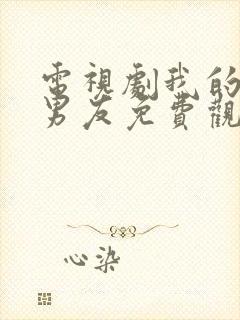 電視劇我的
男友免費觀
心染